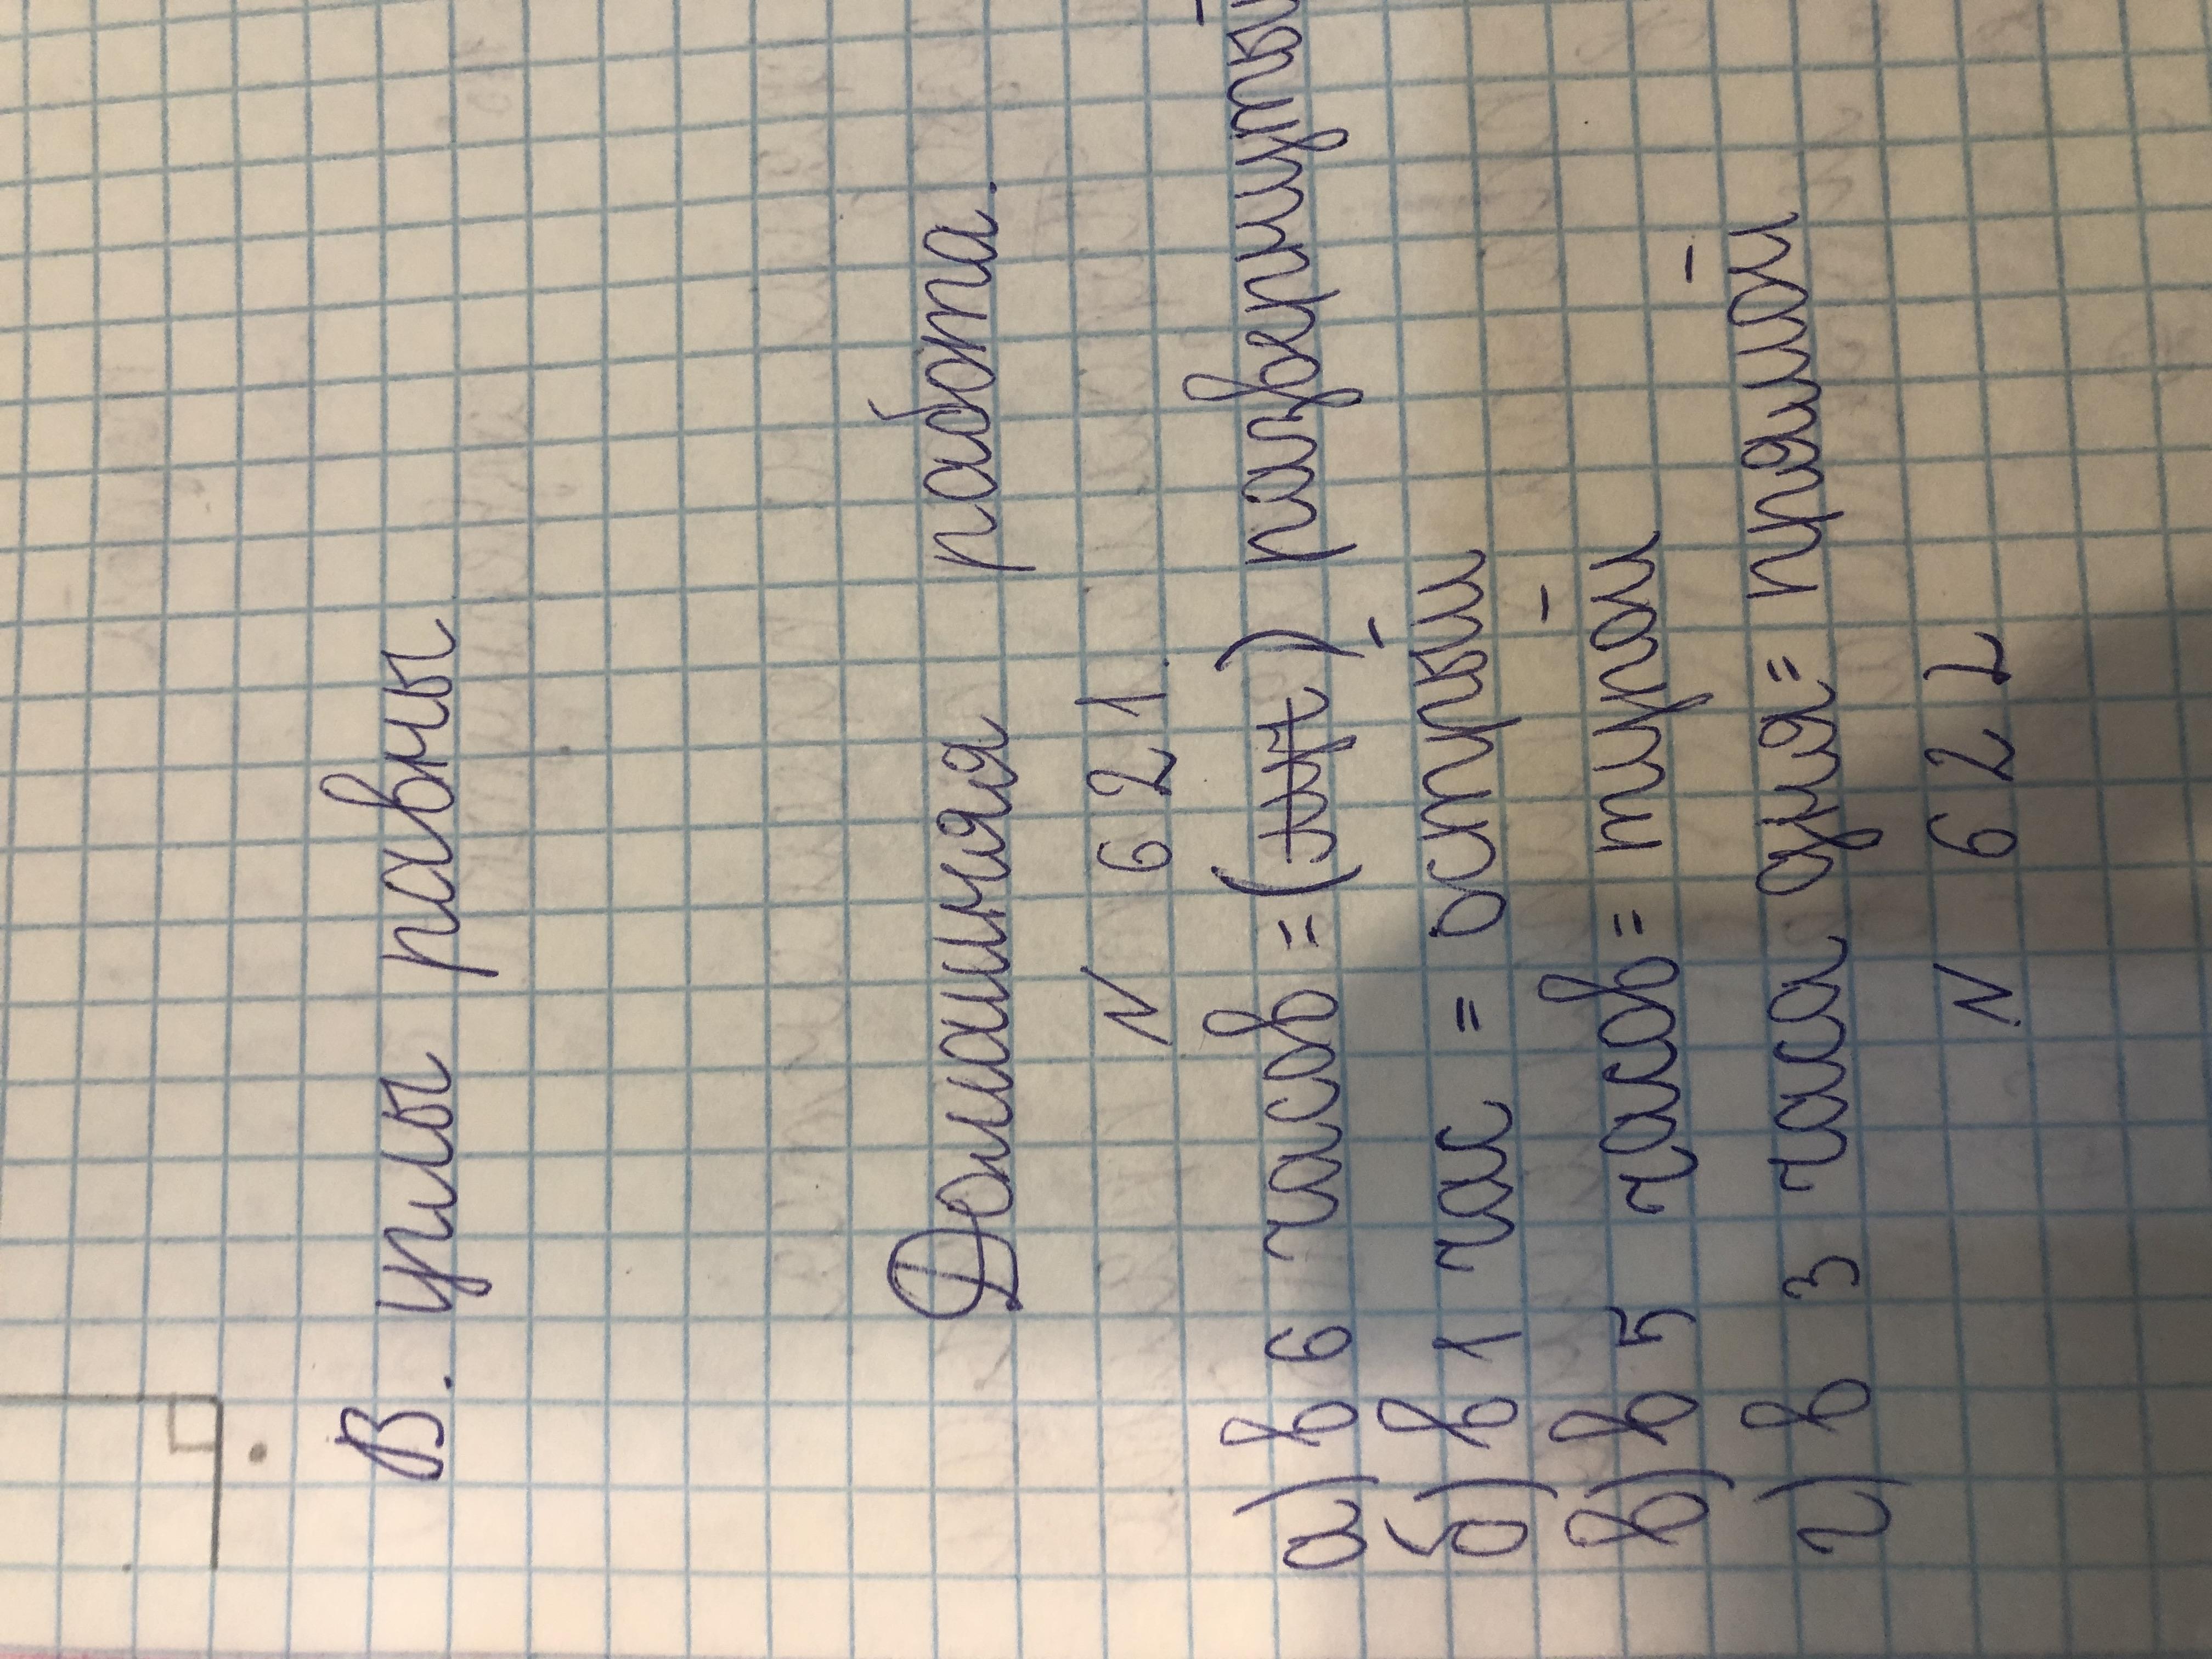 В. углы равны
Домашняя работа.
N 621.
а) в 6 часов = () развернутый
б) в 1 час = острый
в) в 5 часов = тупой
г) в 3 часа дня = прямой
N 622